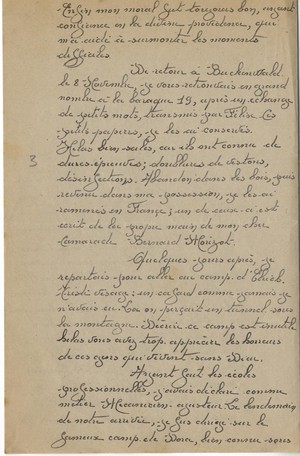 Enfin mon moral fut toujours bon, ayant
confiance en la divine providence, qui
m'a aidé à surmonter les moments
difficiles
De retour à Buchenwald
le 8 Novembre je vous retrouvais en grand
nombre à la baraque 19, après un échange
de petits mots, transmis par Félix. Ces
petits papiers, je les ai conservés
Hélas bien sales, car ils ont connu de
dures épreuves; doublures de vestons,
désinfections. Abandon dans les bois, puis
revenus dans ma possession, je les ai
3
ramenés en France; un de ceux-ci est
écrit de la propre main de mon cher
Camarade Bernard
Quelques jours après, je
repartais pour aller au camp d'
Triste visage: un cafard comme jamais je
n'avais eu. Là on perçait un tunnel sous
la montagne. Décrire ce camp est inutile
hélas vous avez trop apprécier les horreurs
de ces gens qui vivent sans Dieu.
Ayant fait les écoles
professionnelles, j'avais déclaré comme
métier Mécanicien-ajusteur. Le lendemain
de notre arrivée, je fus dirigé sur le
fameux camp de Dora, bien connu sous